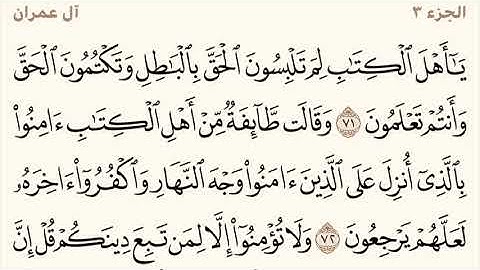 الجزء ٣
آل عمران
يَـٰٓأَهْلَ ٱلْكِتَـٰبِ لِمَ تَلْبِسُونَ ٱلْحَقَّ بِٱلْبَـٰطِلِ وَتَكْتُمُونَ ٱلْحَقَّ
وَأَنتُمْ تَعْلَمُونَ ٧١ وَقَالَت طَّآئِفَةٌ مِّنْ أَهْلِ ٱلْكِتَـٰبِ ءَامِنُوا۟
بِٱلَّذِىٓ أُنزِلَ عَلَى ٱلَّذِينَ ءَامَنُوا۟ وَجْهَ ٱلنَّهَارِ وَٱكْفُرُوٓا۟ ءَاخِرَهُۥ
لَعَلَّهُمْ يَرْجِعُونَ ٧٢ وَلَا تُؤْمِنُوٓا۟ إِلَّا لِمَن تَبِعَ دِينَكُمْ قُلْ إِنَّ